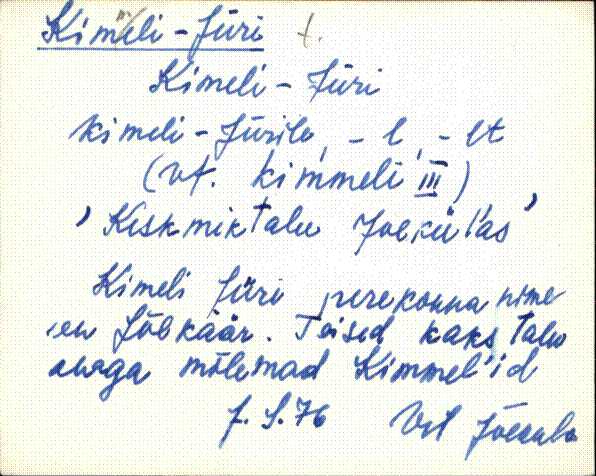 Kimeli-Jüri t.
Kimeli-Jüri
kimeli-Jürile, -l, -lt
(vt. kimmeli III)
'Keskmiktalu Joeküläs'
Kimeli Jüri perekonna nime
en Lübkäär. Teised kaks talu
aňaga mõlemad Kimmel'id
J. S. 76 Vil Jõesuba